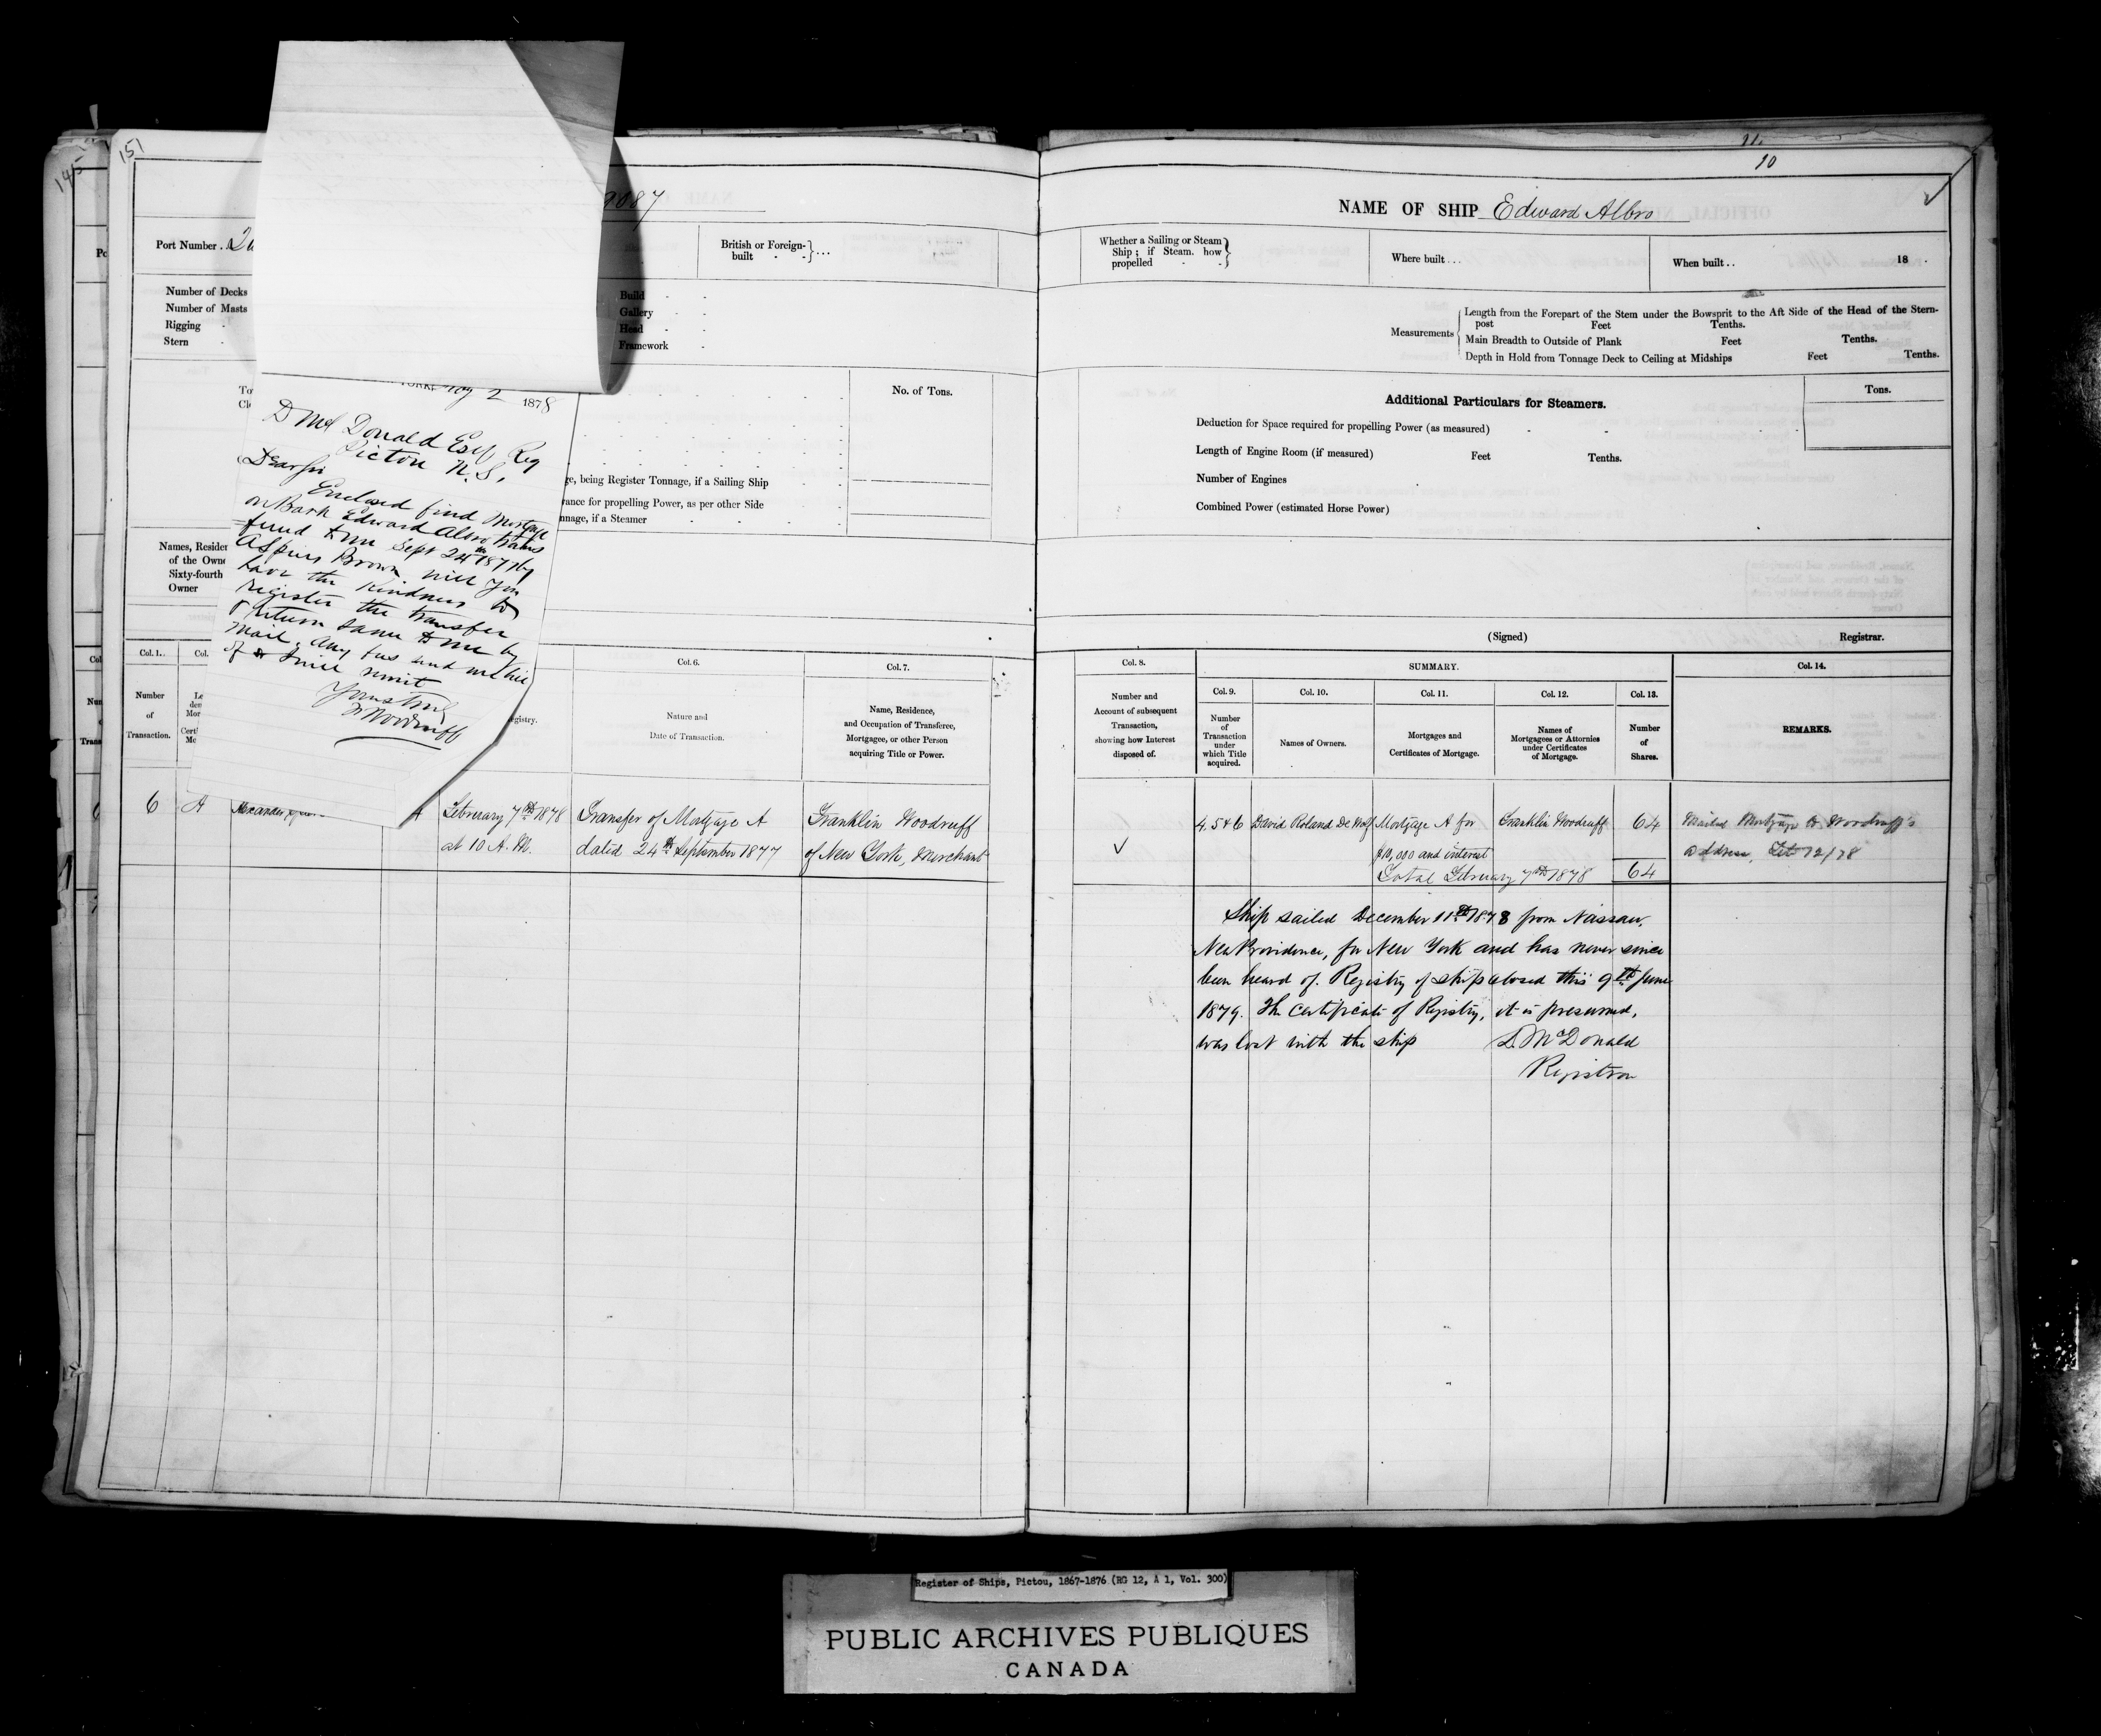 145
151
9087
Port Number
British or Foreign-built
Number of Decks
Number of Masts
Rigging
Stern
Build
Gallery
Head
Framework
No. of Tons.
ge, being Register Tonnage, if a Sailing Ship
ance for propelling Power, as per other Side
nnage, if a Steamer
Names, Residen
of the Owne
Sixty-fourth
Owner
1878
D McDonald Esq, Reg
Pictou N.S,
Dear Sir
Enclosed find Mortgage
on Bark Edward Albro trans
ferred to me Sept 24th 1877 by
Brown will you
have the kindness to
register the transfer
& return same to me by
mail. Any fees send me bill
of & I will remit
Yours truly
F Woodruff
Col. 1.
Col.
Col. 6.
Col. 7.
Number
of
Transaction.
egistry.
Nature and
Date of Transaction.
Name, Residence,
and Occupation of Transferee,
Mortgagee, or other Person
acquiring Title or Power.
6 A A February 7th 1878 Transfer of Mortgage A Franklin Woodruff
at 10 A.M. dated 24th September 1877 of New York, Merchant
11.
10
NAME OF SHIP Edward Albro
Whether a Sailing or Steam
Ship; if Steam. how
propelled
Where built ...
When built ..
18 .
Measurements
Length from the Forepart of the Stem under the Bowsprit to the Aft Side of the Head of the Stern-
post Feet Tenths.
Main Breadth to Outside of Plank Feet Tenths.
Depth in Hold from Tonnage Deck to Ceiling at Midships Feet Tenths.
Additional Particulars for Steamers.
Tons.
Deduction for Space required for propelling Power (as measured)
Length of Engine Room (if measured) Feet Tenths.
Number of Engines
Combined Power (estimated Horse Power)
(Signed) Registrar.
Col. 8.
SUMMARY.
Col. 14.
Number and
Account of subsequent
Transaction,
showing how Interest
disposed of.
Col. 9.
Col. 10.
Col. 11.
Col. 12.
Col. 13.
Number
of
Transaction
under
which Title
acquired.
Names of Owners.
Mortgages and
Certificates of Mortgage.
Names of
Mortgagees or Attornies
under Certificates
of Mortgage.
Number
of
Shares.
REMARKS.
4, 5 & 6 David Roland DeWolf Mortgage A for Franklin Woodruff 64 Mailed Mortgage to Woodruff's
$10,000 and interest address, Feb 12/78
Total February 7th 1878 64
Ship sailed December 11th 1878 from Nassau,
New Providence, for New York and has never since
been heard of. Registry of ship closed this 9th June
1879. The Certificate of Registry, it is presumed,
was lost with the ship D. McDonald
Registrar
Register of Ships, Pictou, 1867-1876 (RG 12, A 1, Vol. 300)
PUBLIC ARCHIVES PUBLIQUES
CANADA